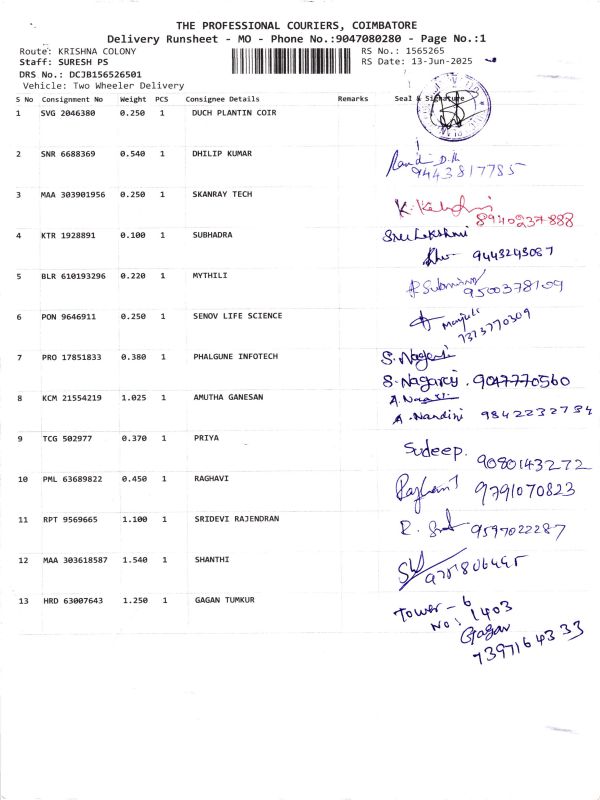 THE PROFESSIONAL COURIERS, COIMBATORE
Delivery Runsheet - MO - Phone No.:9047080280 - Page No.:1
Route: KRISHNA COLONY RS No.: 1565265
Staff: SURESH PS RS Date: 13-Jun-2025
DRS No.: DCJB156526501
Vehicle: Two Wheeler Delivery
S No Consignment No Weight PCS Consignee Details Remarks Seal & Signature
1 SVG 2046380 0.250 1 DUCH PLANTIN COIR
2 SNR 6688369 0.540 1 DHILIP KUMAR
9443817785
3 MAA 303901956 0.250 1 SKANRAY TECH
8940237888
4 KTR 1928891 0.100 1 SUBHADRA Sree Lekshmi
9443243087
5 BLR 610193296 0.220 1 MYTHILI
9500378109
6 PON 9646911 0.250 1 SENOV LIFE SCIENCE
Manjula
7373770309
7 PRO 17851833 0.380 1 PHALGUNE INFOTECH S. Nagaraj
S. Nagaraj. 9047770560
8 KCM 21554219 1.025 1 AMUTHA GANESAN
A. Nandini 9842232734
9 TCG 502977 0.370 1 PRIYA Sudeep.
9080143272
10 PML 63689822 0.450 1 RAGHAVI 9791070823
11 RPT 9569665 1.100 1 SRIDEVI RAJENDRAN 9597022287
12 MAA 303618587 1.540 1 SHANTHI
13 HRD 63007643 1.250 1 GAGAN TUMKUR Tower - 6
No: 1403
Gagan
7397164333